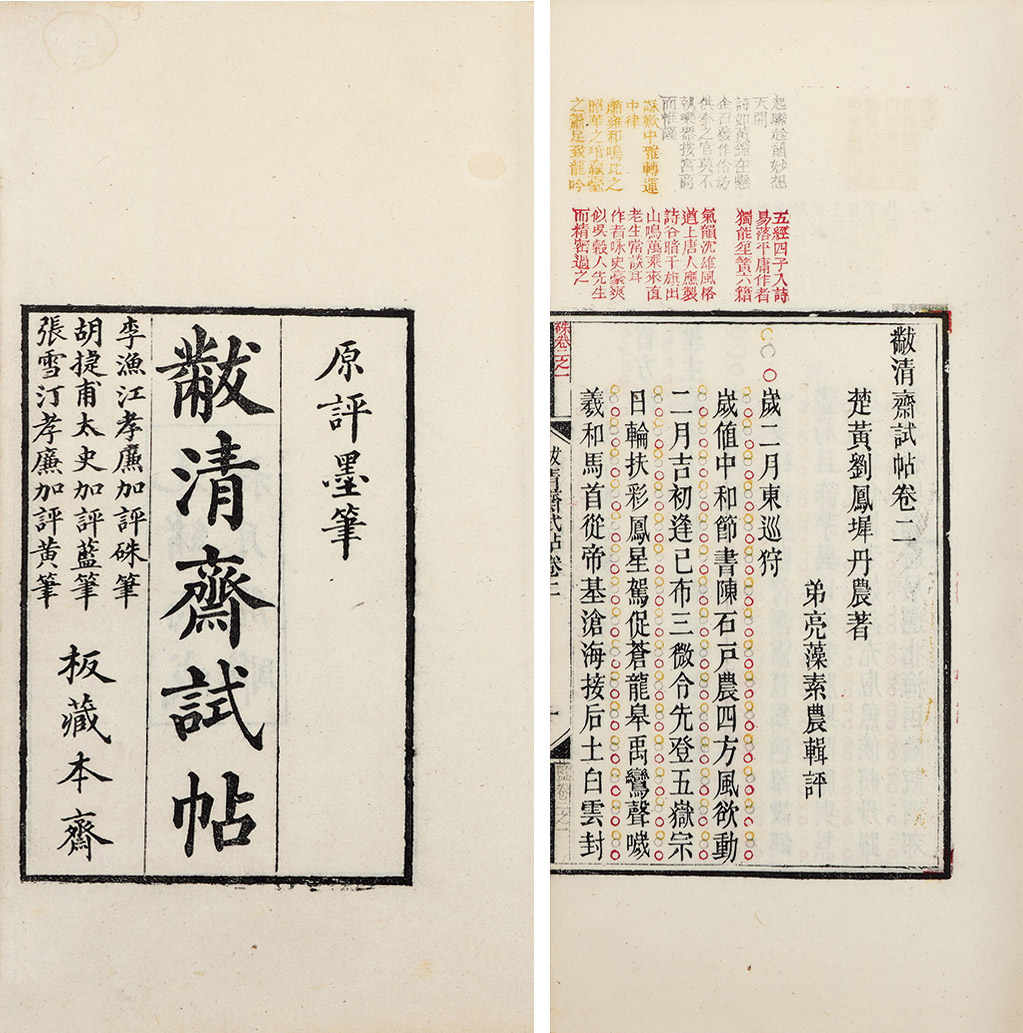 原評墨筆
黻清齋試帖
李漁江孝廉加評硃筆
胡捷甫太史加評藍筆
張雪汀孝廉加評黃筆
板藏本齋
起聯趁韻妙想
天開
詩如黃鐘在懸
執樂器按宮商
詠歎中雅轉運
中律
肅雍和鳴比之
之簫足致龍吟
五經四子入詩
易落平庸作者
獨能笙簧六籍
氣韻沈雄風格
道上唐人應製
詩谷暗千旗出
山鳴萬乘來直
老生常談耳
作者咏史豪爽
似吳穀人先生
而精密過之
黻清齋試帖卷二
楚黃劉鳳墀丹農著
弟亮藻素農輯評
歲二月東巡狩
歲値中和節書陳石戸農四方風欲動
二月吉初逢已布三微令先登五嶽宗
日輪扶彩鳳星駕促蒼龍皋禹鸞聲噦
羲和馬首從帝基滄海接后土白雲封
硃卷二之一
黻清齋試帖卷二
一
藍卷二之一